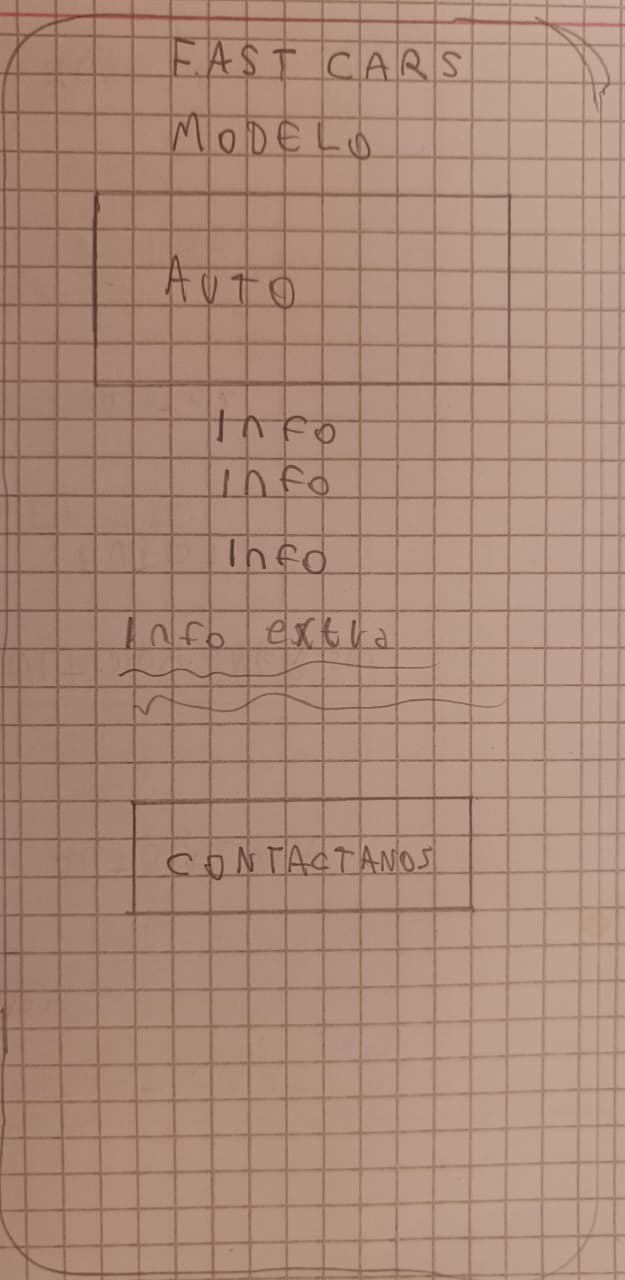 FAST CARS
MODELO
AUTO
Info
Info
Info
Info extra
CONTACTANOS